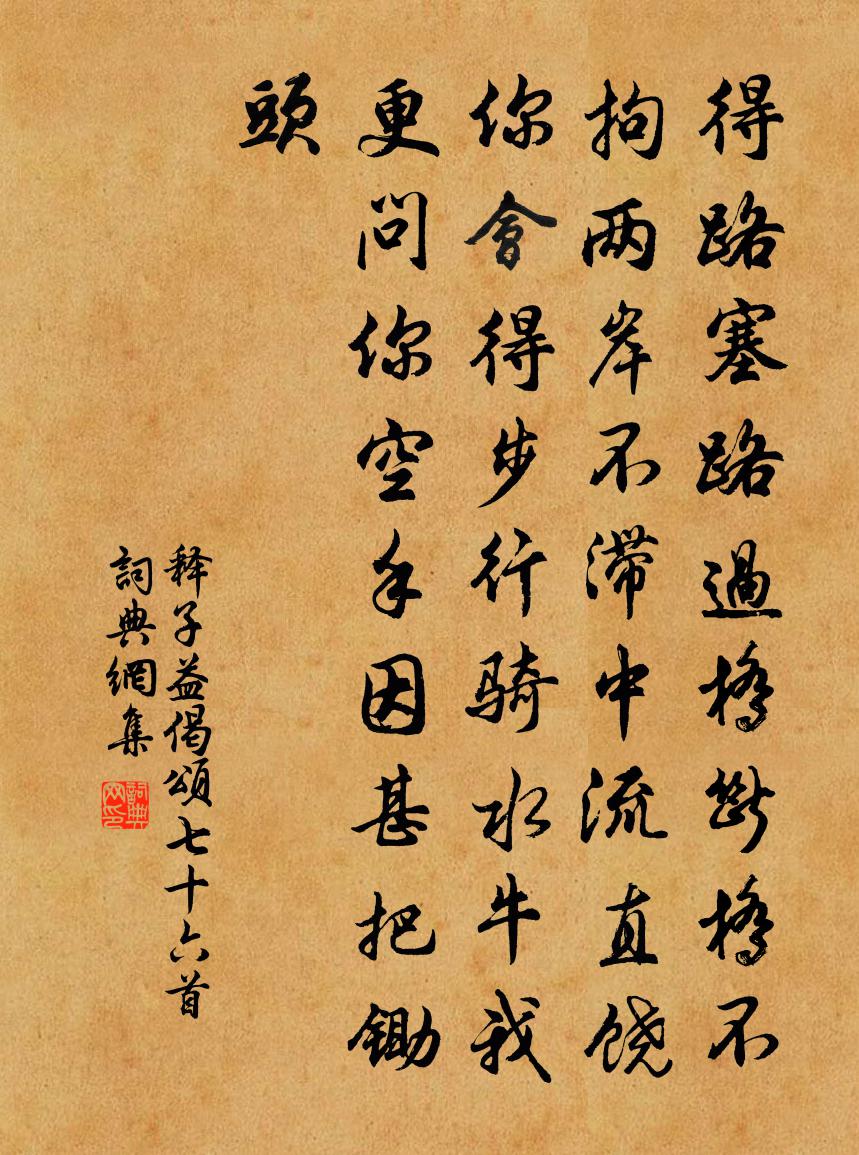 得路塞路過橋斷橋不
拘两岸不滞中流直饶
你會得步行骑水牛我
更问你空手因甚把鋤
頭
释子益偈頌七十六首
詞典網集
詞典网印